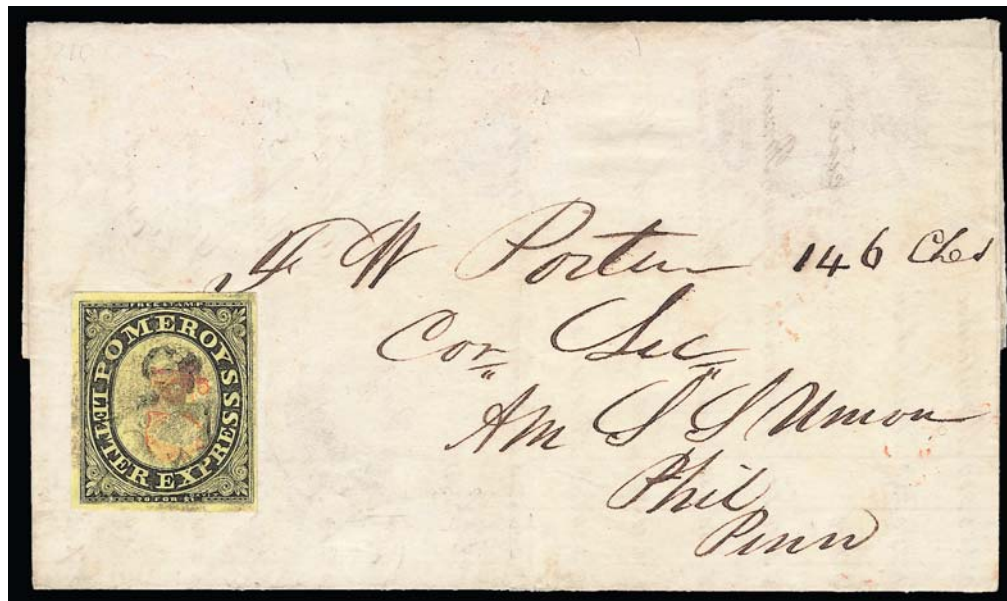 F W Porter 146 Ches
Cor Sec
Am S S Union
Phil
Penn
FREE STAMP
POMEROY'S
LETTER EXPRESS
20 FOR $1